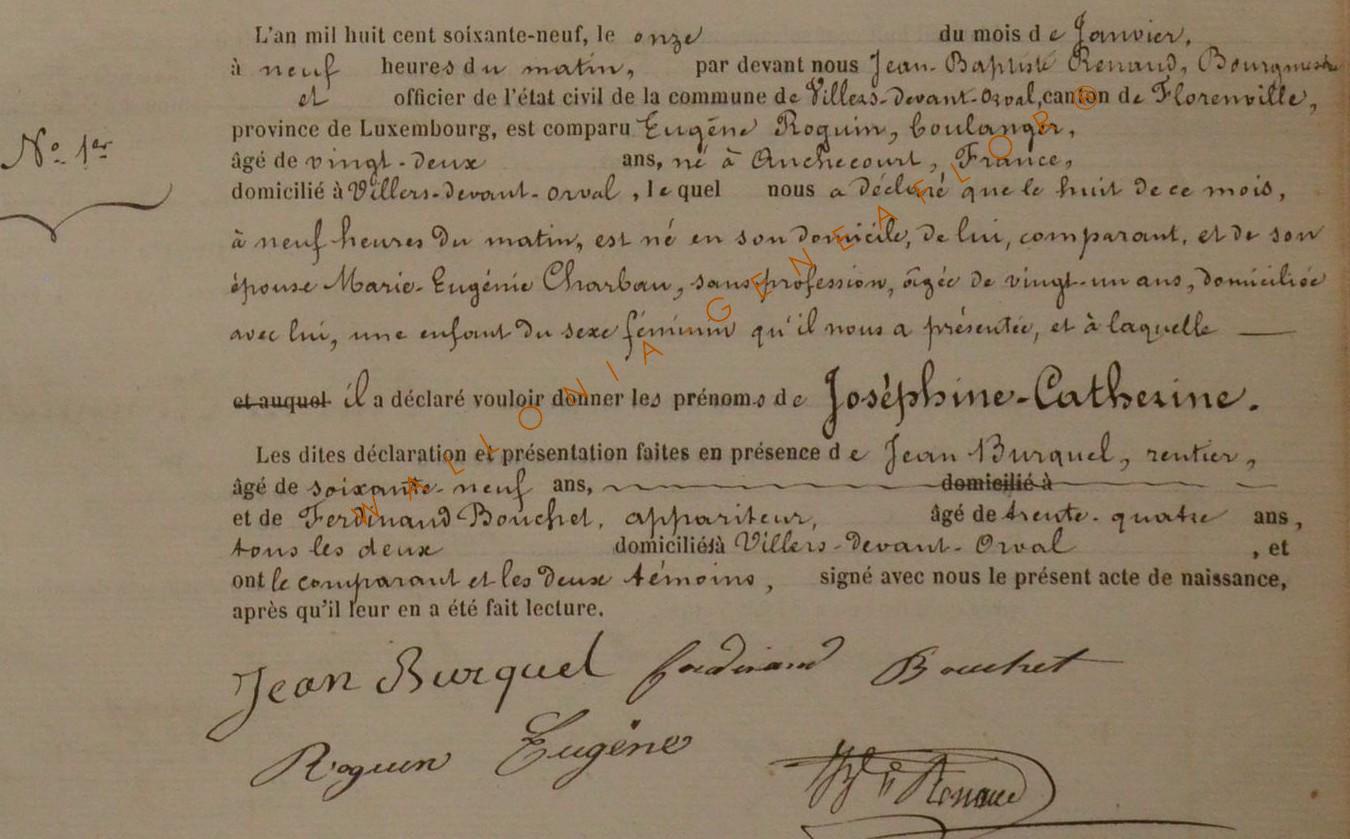 L'an mil huit cent soixante-neuf, le onze du mois de Janvier,
à neuf heures du matin, par devant nous Jean-Baptiste Renaud, Bourgmestre
et officier de l'état civil de la commune de Villers-devant-Orval, canton de Florenville,
province de Luxembourg, est comparu Eugène Roguin, boulanger,
N° 1er
âgé de vingt-deux ans, né à Anchecourt, France,
domicilié à Villers-devant-Orval, lequel nous a déclaré que le huit de ce mois,
à neuf heures du matin, est né en son domicile, de lui, comparant, et de son
épouse Marie-Eugénie Charbau, sans profession, âgée de vingt-un ans, domiciliée
avec lui, une enfant du sexe féminin qu'il nous a présentée, et à laquelle
et auquel il a déclaré vouloir donner les prénoms de Joséphine-Catherine.
Les dites déclaration et présentation faites en présence de Jean Burquel, rentier,
âgé de soixante-neuf ans, domicilié à
et de Ferdinand Bouchet, appariteur, âgé de trente-quatre ans,
tous les deux domiciliés à Villers-devant-Orval, et
ont le comparant et les deux témoins, signé avec nous le présent acte de naissance,
après qu'il leur en a été fait lecture.
Jean Burquel Ferdinand Bouchet
Roguin Eugène Renaud
WALLONIA GENEALOB®